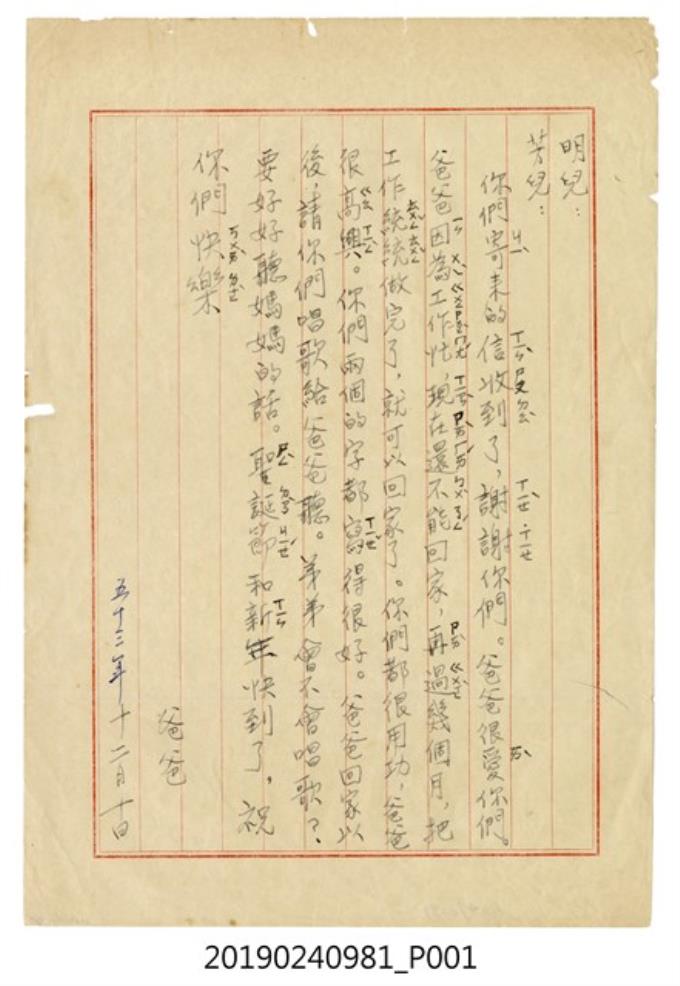 明兒：
芳兒：
你們寄来的信收到了，謝謝你們。爸爸很愛你們。
爸爸因為工作忙，現在還不能回家，再過幾個月，把
工作統統做完了，就可以回家了。你們都很用功，爸爸
很高興。你們兩個的字都寫得很好。爸爸回家以
後，請你們唱歌給爸爸聽。弟弟會不會唱歌？
要好好聽媽媽的話。聖誕節和新年快到了，祝
你們快樂
爸爸
五十三年十二月十日
20190240981_P001